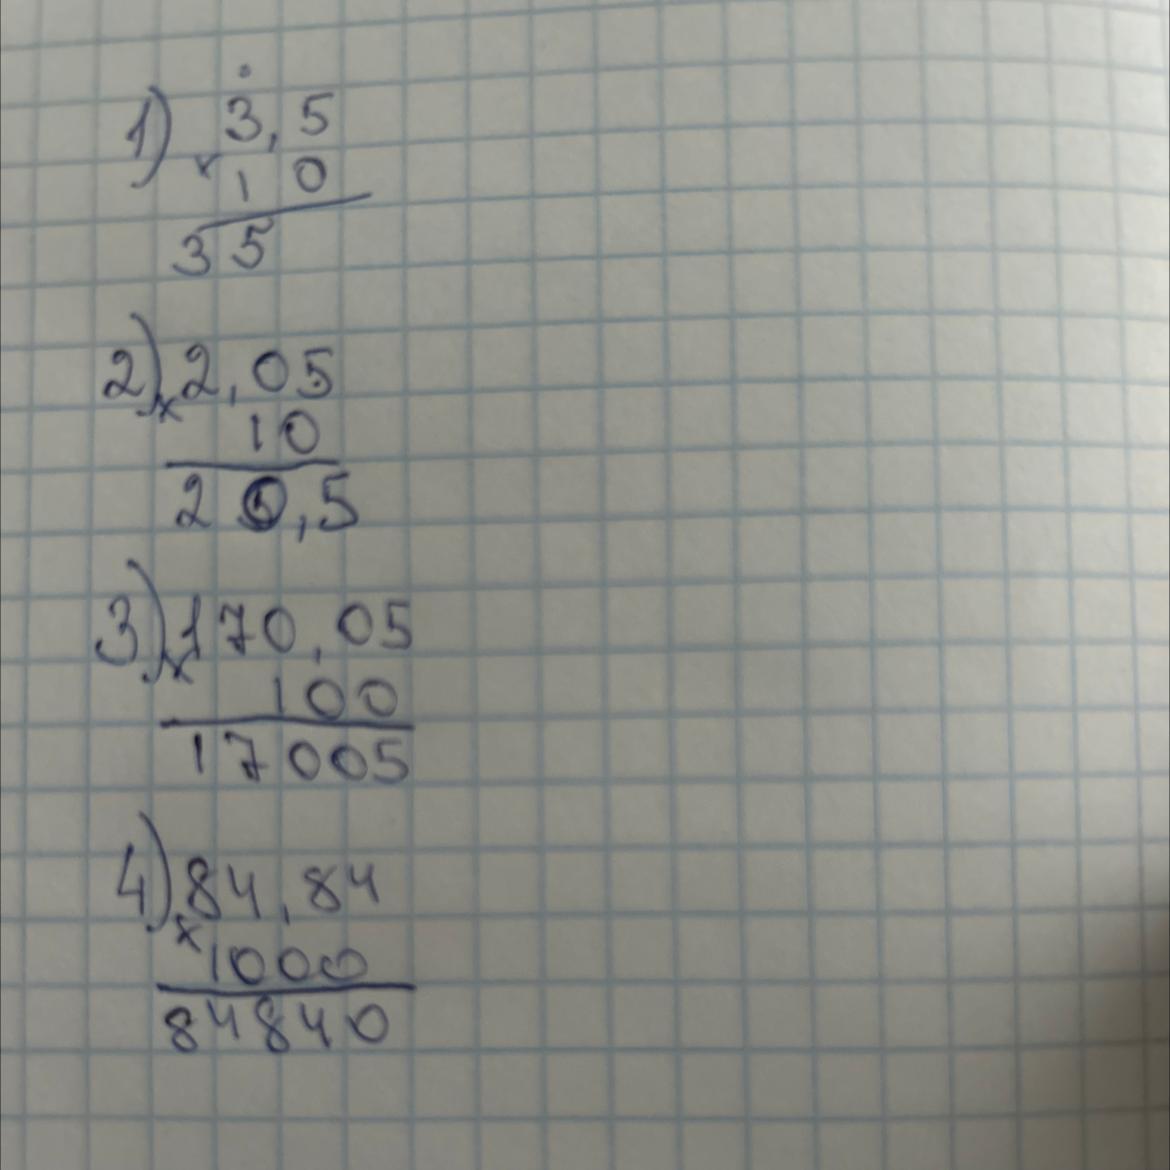 1) 3,5
× 10
35
2) 2,05
× 10
20,5
3) 170,05
× 100
17005
4) 84,84
× 1000
84840